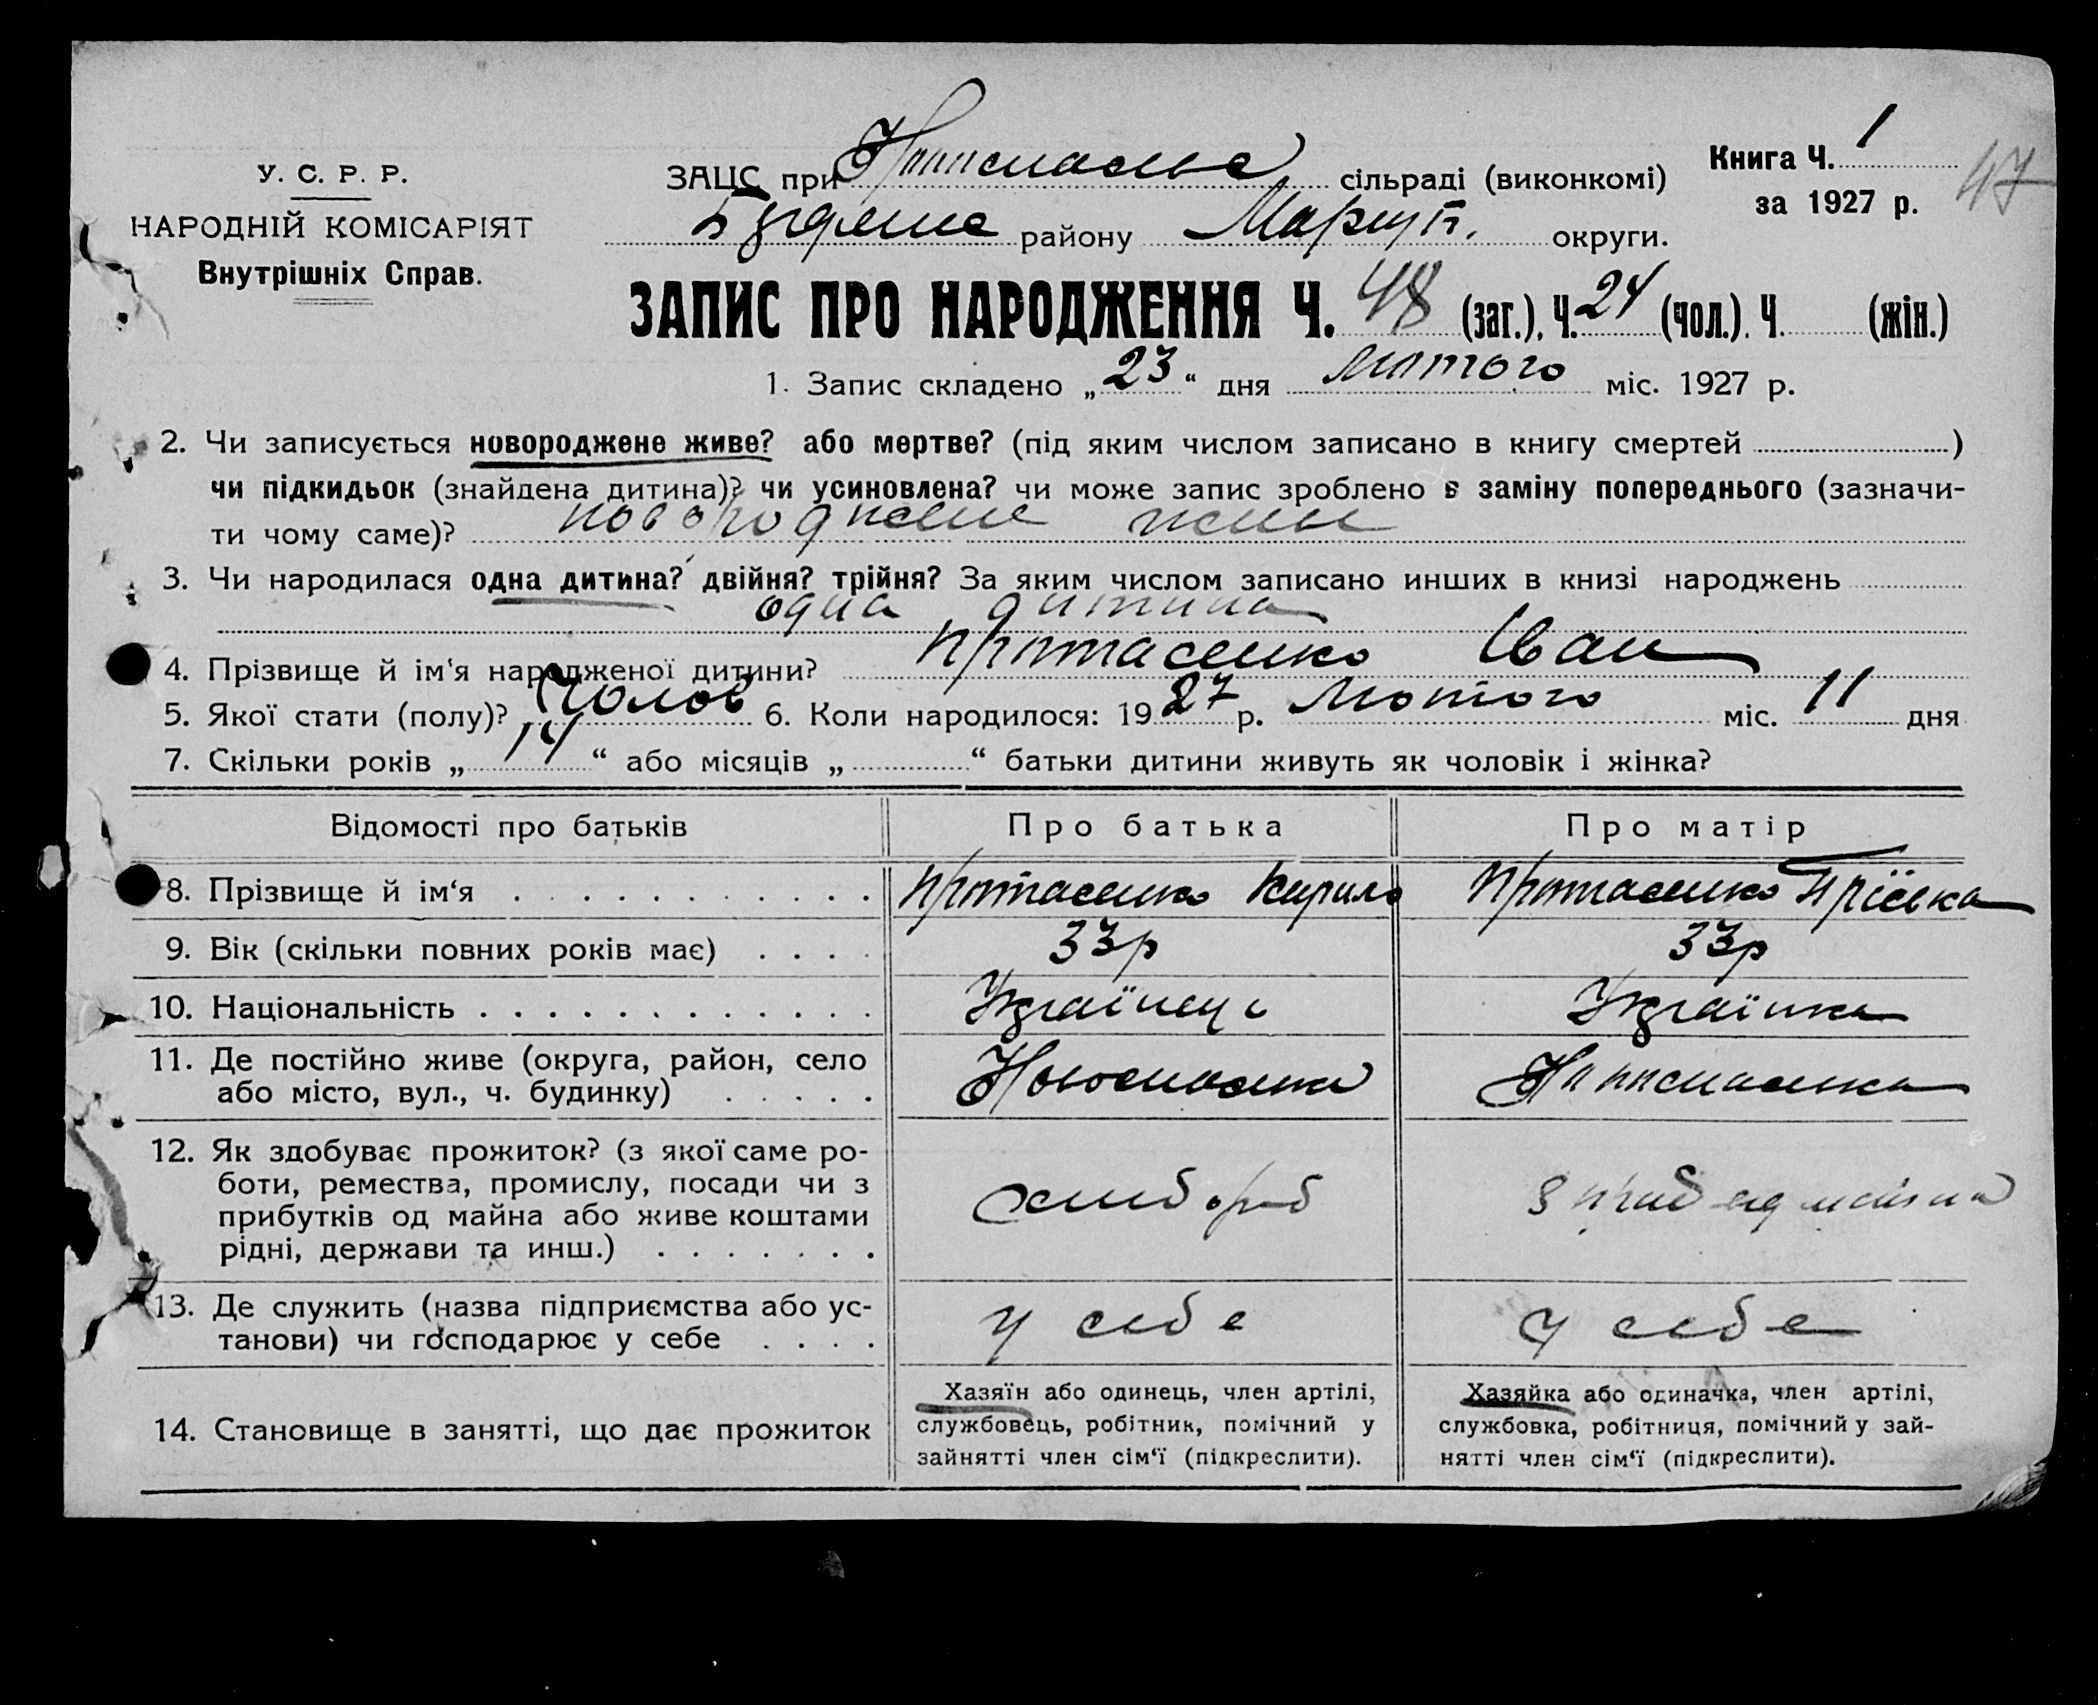 У. С. Р. Р.
НАРОДНІЙ КОМІСАРІЯТ
Внутрішніх Справ.
ЗАЦС при сільраді (виконкомі)
району Маріуп. округи.
Книга Ч. 1
за 1927 р.
47
ЗАПИС ПРО НАРОДЖЕННЯ Ч. 48 (заг.), Ч. 24 (чол.), Ч. (жін.)
1. Запис складено „23“ дня лютого міс. 1927 р.
2. Чи записується новороджене живе? або мертве? (під яким числом записано в книгу смертей )
чи підкидьок (знайдена дитина)? чи усиновлена? чи може запис зроблено в заміну попереднього (зазначи-
ти чому саме)? новороджене живе
3. Чи народилася одна дитина? двійня? трійня? За яким числом записано инших в книзі народжень
одна дитина
4. Прізвище й ім'я народженої дитини? Протасенко Іван
5. Якої стати (полу)? Чолов 6. Коли народилося: 1927 р. Лютого міс. 11 дня
7. Скільки років „14“ або місяців „ “ батьки дитини живуть як чоловік і жінка?
Відомості про батьків Про батька Про матір
8. Прізвище й ім‘я Протасенко Кирило Протасенко
9. Вік (скільки повних років має) 33р 33р
10. Національність Українець Українка
11. Де постійно живе (округа, район, село
або місто, вул., ч. будинку) Новоспасівка Новоспасівка
12. Як здобуває прожиток? (з якої саме ро-
боти, ремества, промислу, посади чи з
прибутків од майна або живе коштами
рідні, держави та инш.) хлібороб
13. Де служить (назва підприємства або ус-
танови) чи господарює у себе у себе у себе
14. Становище в занятті, що дає прожиток
Хазяїн або одинець, член артілі,
службовець, робітник, помічний у
зайнятті член сім‘ї (підкреслити).
Хазяйка або одиначка, член артілі,
службовка, робітниця, помічний у зай-
нятті член сім‘ї (підкреслити).